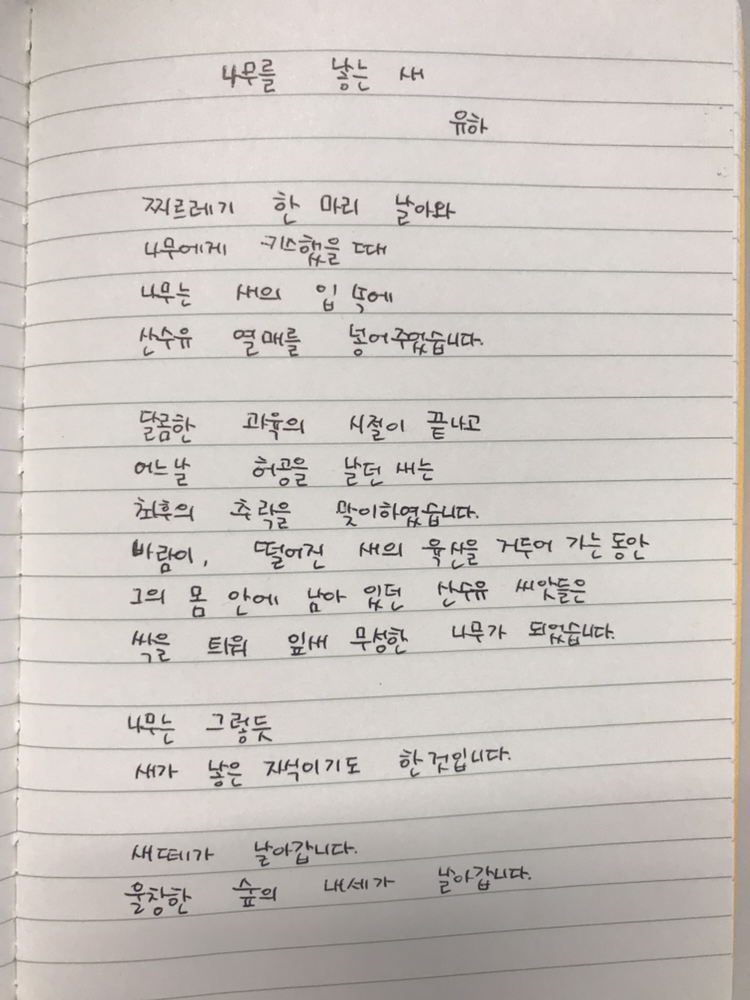 나무를 낳는 새
유하
찌르레기 한 마리 날아와
나무에게 키스했을 때
나무는 새의 입 속에
산수유 열매를 넣어주었습니다.
달콤한 과육의 시절이 끝나고
어느날 허공을 날던 새는
최후의 추락을 맞이하였습니다.
바람이, 떨어진 새의 육신을 거두어 가는 동안
그의 몸 안에 남아 있던 산수유 씨앗들은
싹을 틔워 잎새 무성한 나무가 되었습니다.
나무는 그렇듯
새가 낳은 자식이기도 한 것입니다.
새떼가 날아갑니다.
울창한 숲의 내세가 날아갑니다.